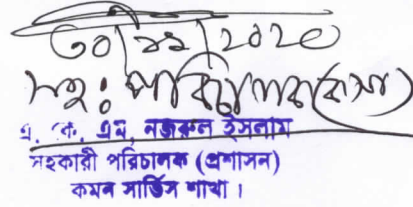 ৩০/১১/২০২০
সহঃ পরিচালক (কসা)
এ. কে. এম. নজরুল ইসলাম
সহকারী পরিচালক (প্রশাসন)
কমন সার্ভিস শাখা ।